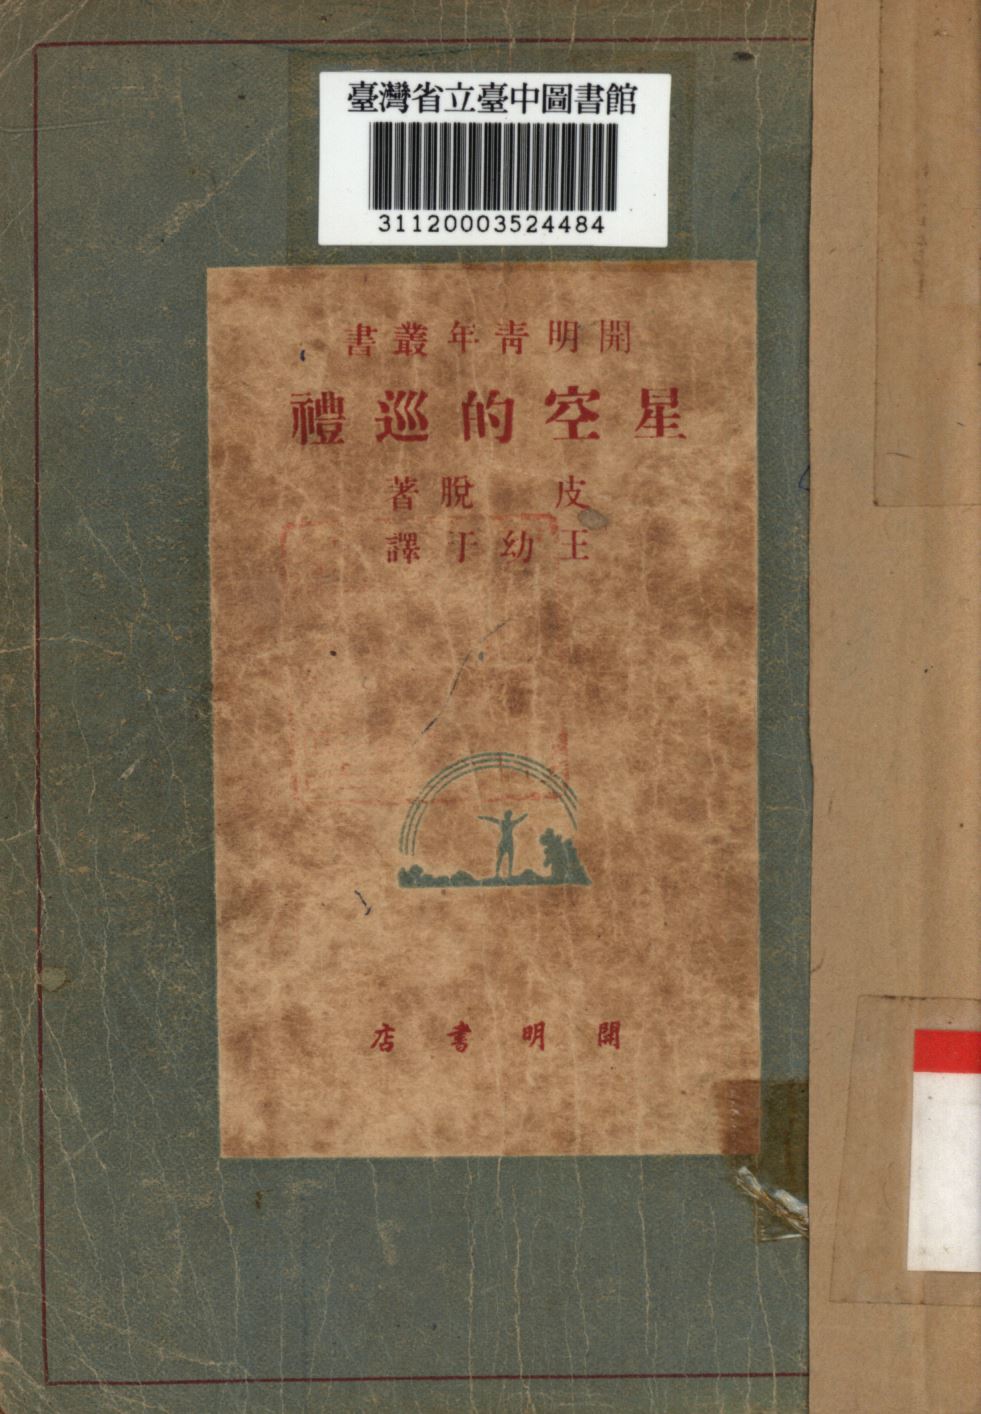 臺灣省立臺中圖書館
31120003524484
開明青年叢書
星空的巡禮
皮脫著
王幼于譯
開明書店